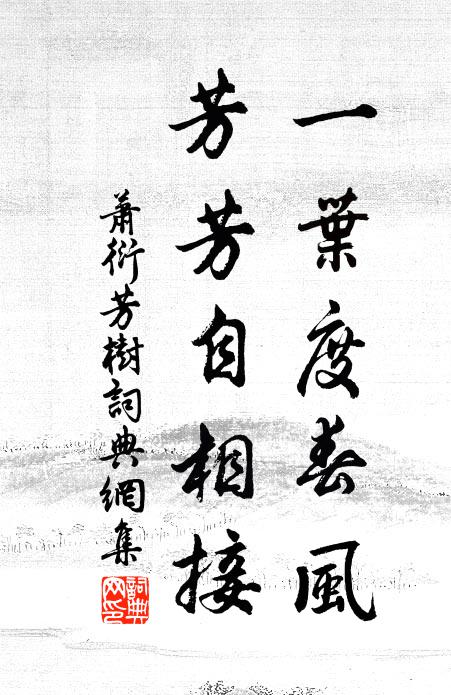 一葉度春風
芳芳自相接
蕭衍芳樹詞典網集
詞典网印